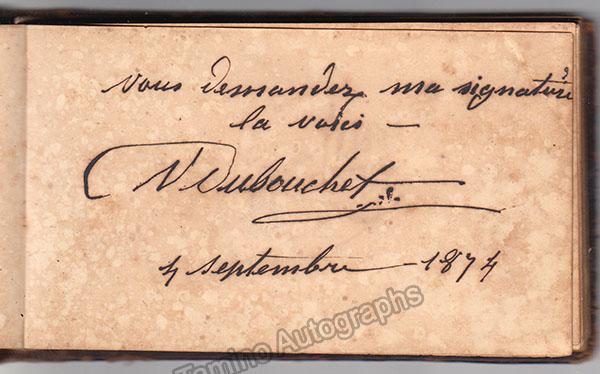 vous demandez ma signature
la voici —
V Dubouchet
4 septembre — 1874
Tamino Autographs